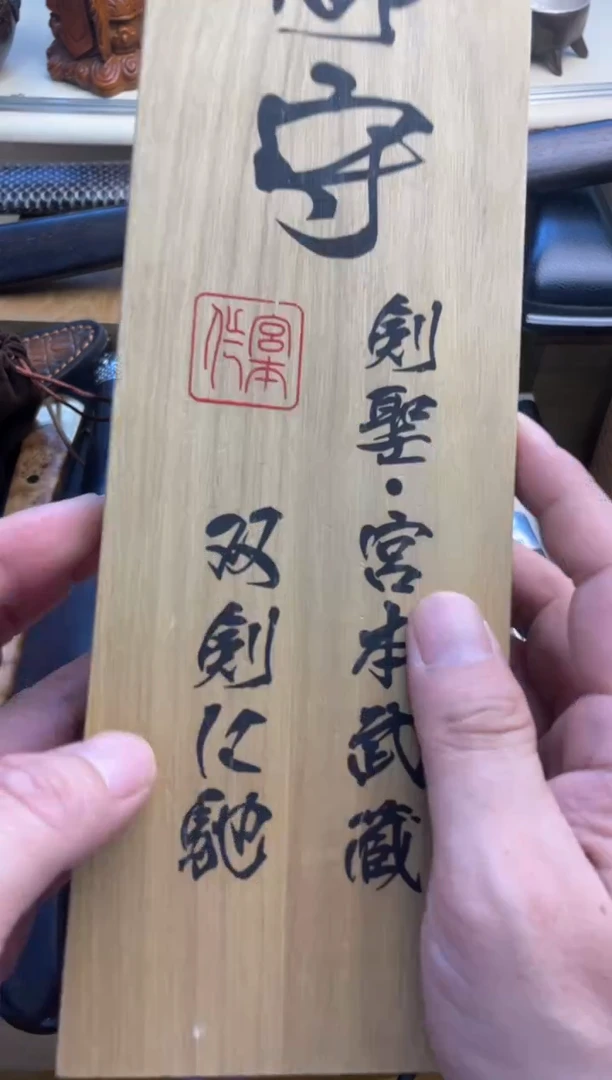 守
剣聖・宮本武蔵
双剣に馳
宮本